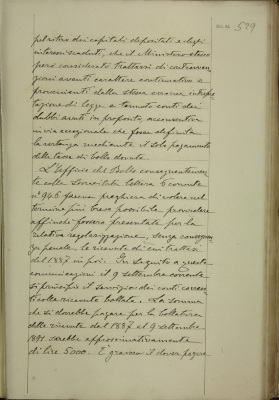 529
pel ritiro dei capitali depositati e degli
interessi scaduti, che il Ministero stesso
però considerato trattarsi di contravven
zioni aventi carattere continuativo e
provenienti dalla stessa erronea interpre
tazione di legge e tenuto conto dei
dubbi avuti in proposito, acconsentiva
in via eccezionale che fosse definita
la vertenza mediante il solo pagamento
delle tasse di bollo dovute.
L'Ufficio del Bollo conseguentemen
te colla lettera 6 corrente
n° 946 faceva preghiera di volere nel
termine più breve possibile provvedere
affinchè fossero presentate per la
relativa regolarizzazione, senza conseguen
za penale, le ricevute di cui trattasi
dal 1887 in poi. In seguito a queste
comunicazioni il 9 settembre corrente
si principiò il servizio dei conti corren
ti colla ricevuta bollata. La somma
che si dovrebbe pagare per la bollatura
delle ricevute dal 1887 al 9 settembre
1891 sarebbe approssimativamente
di lire 5000. È gravoso il dover pagare